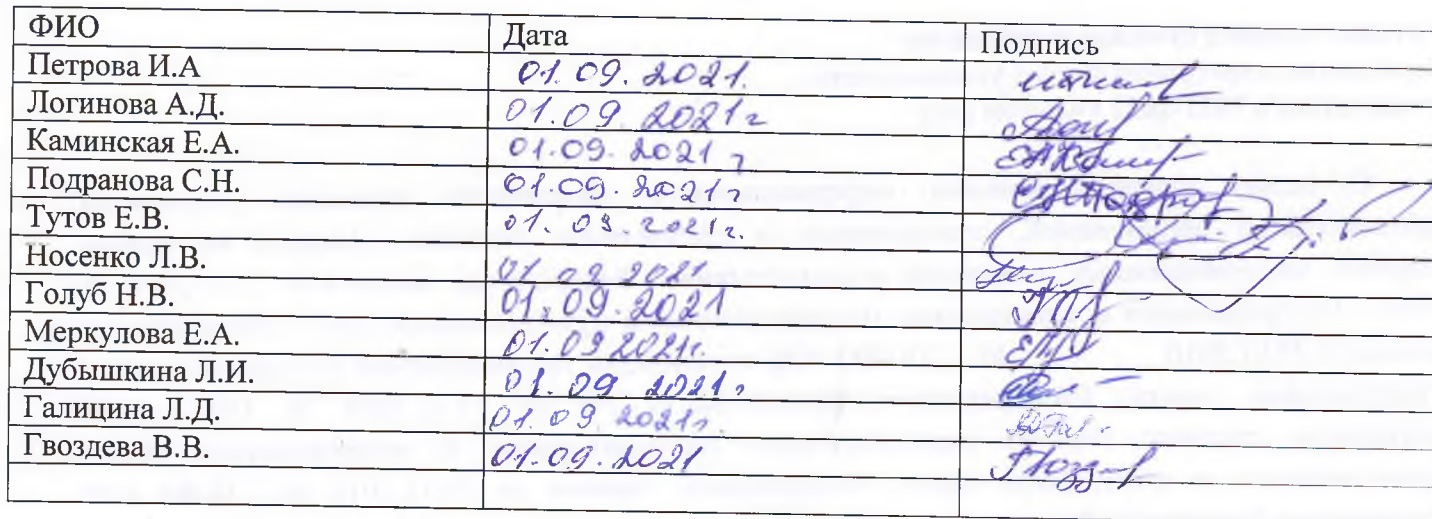 ФИО Дата Подпись
Петрова И.А 01.09.2021.
Логинова А.Д. 01.09.2021г
Каминская Е.А. 01.09.2021г
Подранова С.Н. 01.09.2021г
Тутов Е.В. 01.09.2021г.
Носенко Л.В. 01.09.2021
Голуб Н.В. 01.09.2021
Меркулова Е.А. 01.09.2021г.
Дубышкина Л.И. 01.09.2021г
Галицина Л.Д. 01.09.2021г
Гвоздева В.В. 01.09.2021